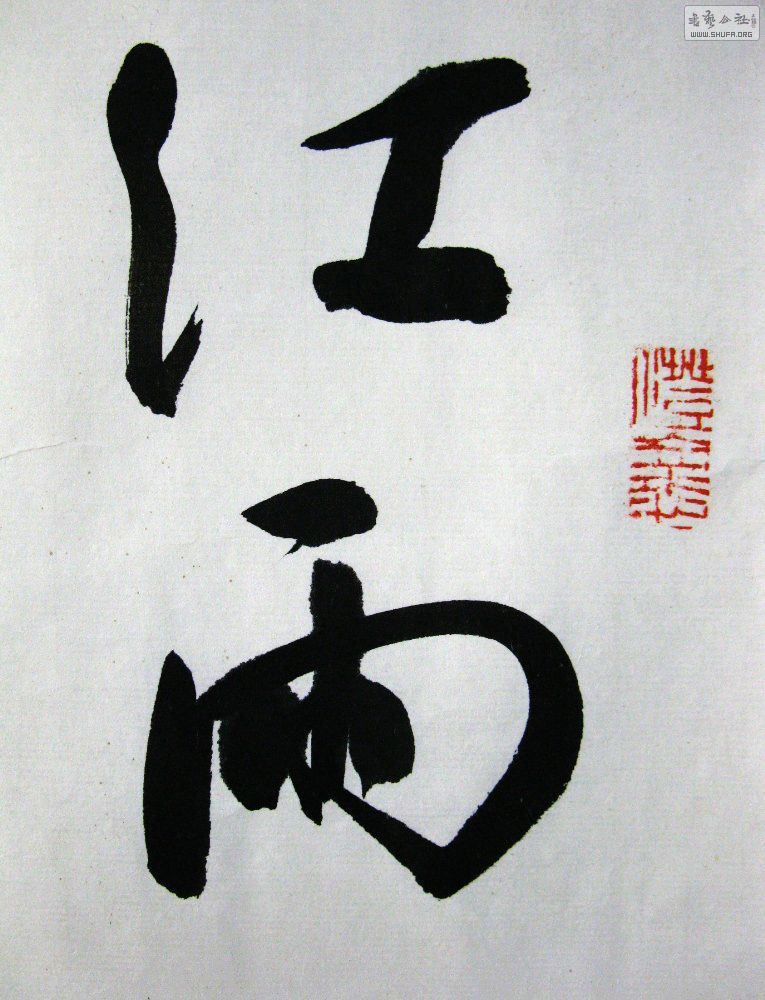 江雨
书艺公社
WWW.SHUFA.ORG